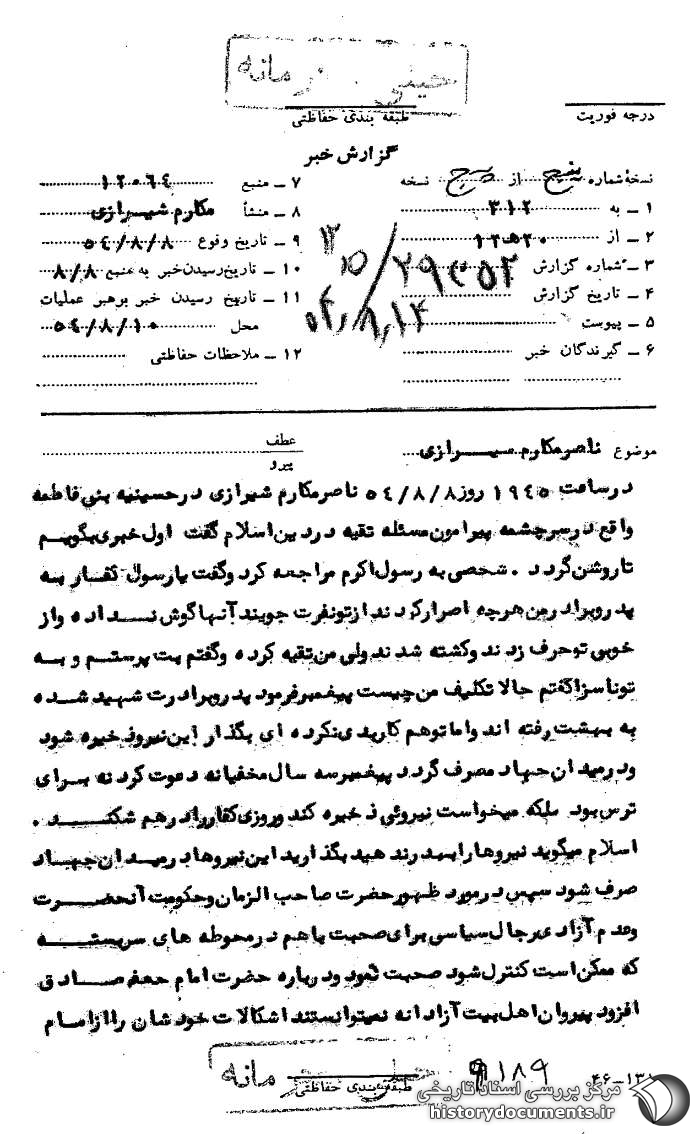 درجه فوریت
طبقه بندی حفاظتی
گزارش خبر
نسخهٔ شماره پنج از پنج نسخه
۱ ـ به ۳۱۲
۲ ـ از ۱۲ه۲۰
۳ ـ شماره گزارش
۴ ـ تاریخ گزارش
۵ ـ پیوست
۶ ـ گیرندگان خبر
۷ ـ منبع ۱۲۰۶۴
۸ ـ منشأ مکارم شیرازی
۹ ـ تاریخ وقوع ۵۴/۸/۸
۱۰ ـ تاریخ رسیدن خبر به منبع ۸/۸
۱۱ ـ تاریخ رسیدن خبر برهبر عملیات
محل ۵۴/۸/۱۰
۱۲ ـ ملاحظات حفاظتی
موضوع ناصر مکارم شیرازی
عطف
پیرو
در ساعت ۱۹۴۵ روز ۵۴/۸/۸ ناصر مکارم شیرازی در حسینیه بنی فاطمه
واقع در سرچشمه پیرامون مسئله تقیه در دین اسلام گفت اول خبری بگویم
تا روشن گردد . شخصی به رسول اکرم مراجعه کرد و گفت یا رسول کفار به
پدر و برادر من هرچه اصرار کردند از تو نفرت جویند آنها گوش نداده و از
خوبی تو حرف زدند و کشته شدند ولی من تقیه کرده و گفتم بت پرستم و به
تو ناسزا گفتم حالا تکلیف من چیست پیغمبر فرمود پدر و برادرت شهید شده
به بهشت رفته اند و اما تو هم کار بدی نکرده ای بگذار این نیرو ذخیره شود
و در میدان جهاد مصرف گردد پیغمبر سه سال مخفیانه دعوت کرد نه برای
ترس بود بلکه میخواست نیروئی ذخیره کند و روزی کفار را در هم شکند .
اسلام میگوید نیروها را هدر ندهید بگذارید این نیروها در میدان جهاد
صرف شود سپس در مورد ظهور حضرت صاحب الزمان و حکومت آنحضرت
وعدم آزادی رجال سیاسی برای صحبت با هم در محوطه های سربسته
که ممکن است کنترل شود صحبت نمود و درباره حضرت امام جعفر صادق
افزود پیروان اهل بیت آزادانه نمیتوانستند اشکالات خودشان را از امام
طبقه بندی حفاظتی
مرکز بررسی اسناد تاریخی
historydocuments.ir